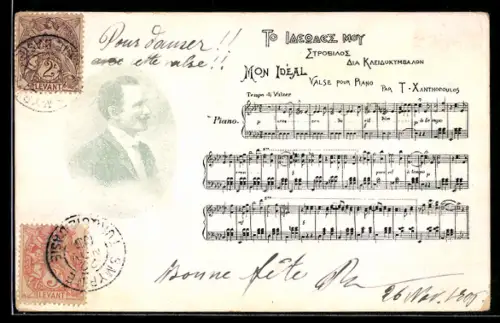 Pour danser !!
avec cette valse !!
ΤΟ ΙΔΕΩΔΕΣ ΜΟΥ
ΣΤΡΟΒΙΛΟΣ
ΔΙΑ ΚΛΕΙΔΟΚΥΜΒΑΛΟΝ
MON IDÉAL
VALSE POUR PIANO
PAR T. XANTHOPOULOS
Tempo di Valzer
Piano.
2
LEVANT
LEVANT
SMYRNE
Bonne fête
26 Nov.